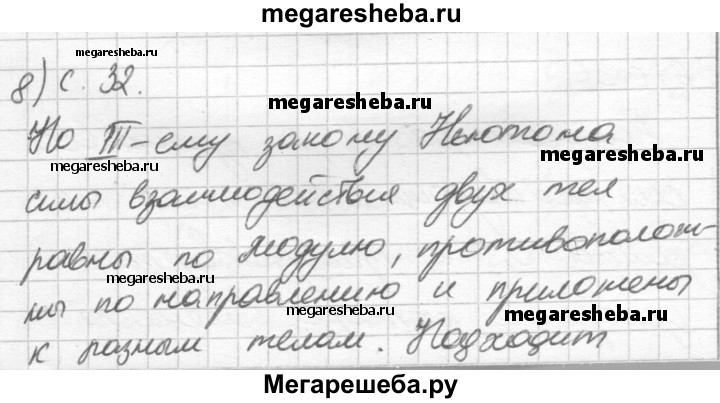 megaresheba.ru
megaresheba.ru
8) с. 32.
megaresheba.ru
По III-ему закону Ньютона
megaresheba.ru
megaresheba.ru
силы взаимодействия двух тел
равны по модулю, противополож-
megaresheba.ru
ны по направлению и приложены
megaresheba.ru
к разным телам. Подходит
Мегарешеба.ру